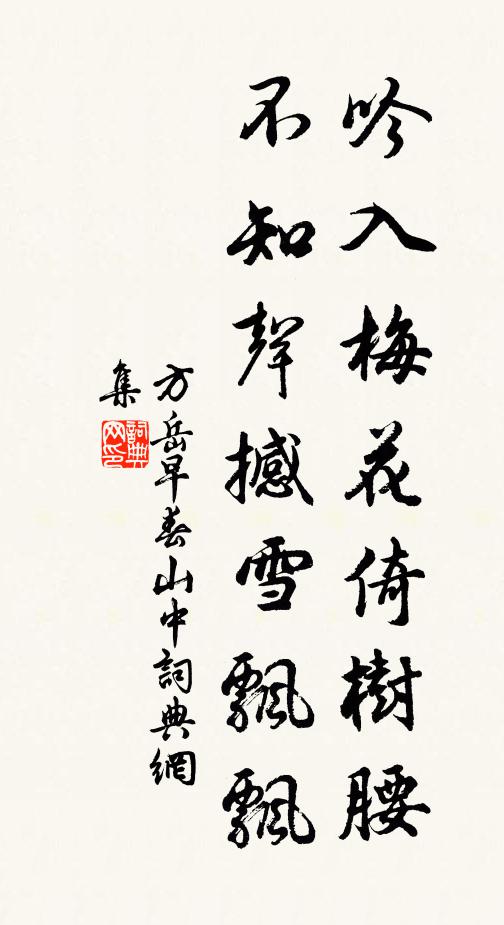 吟入梅花倚樹腰
不知聲撼雪飄飄
方岳早春山中詞典網
集
詞典
网印